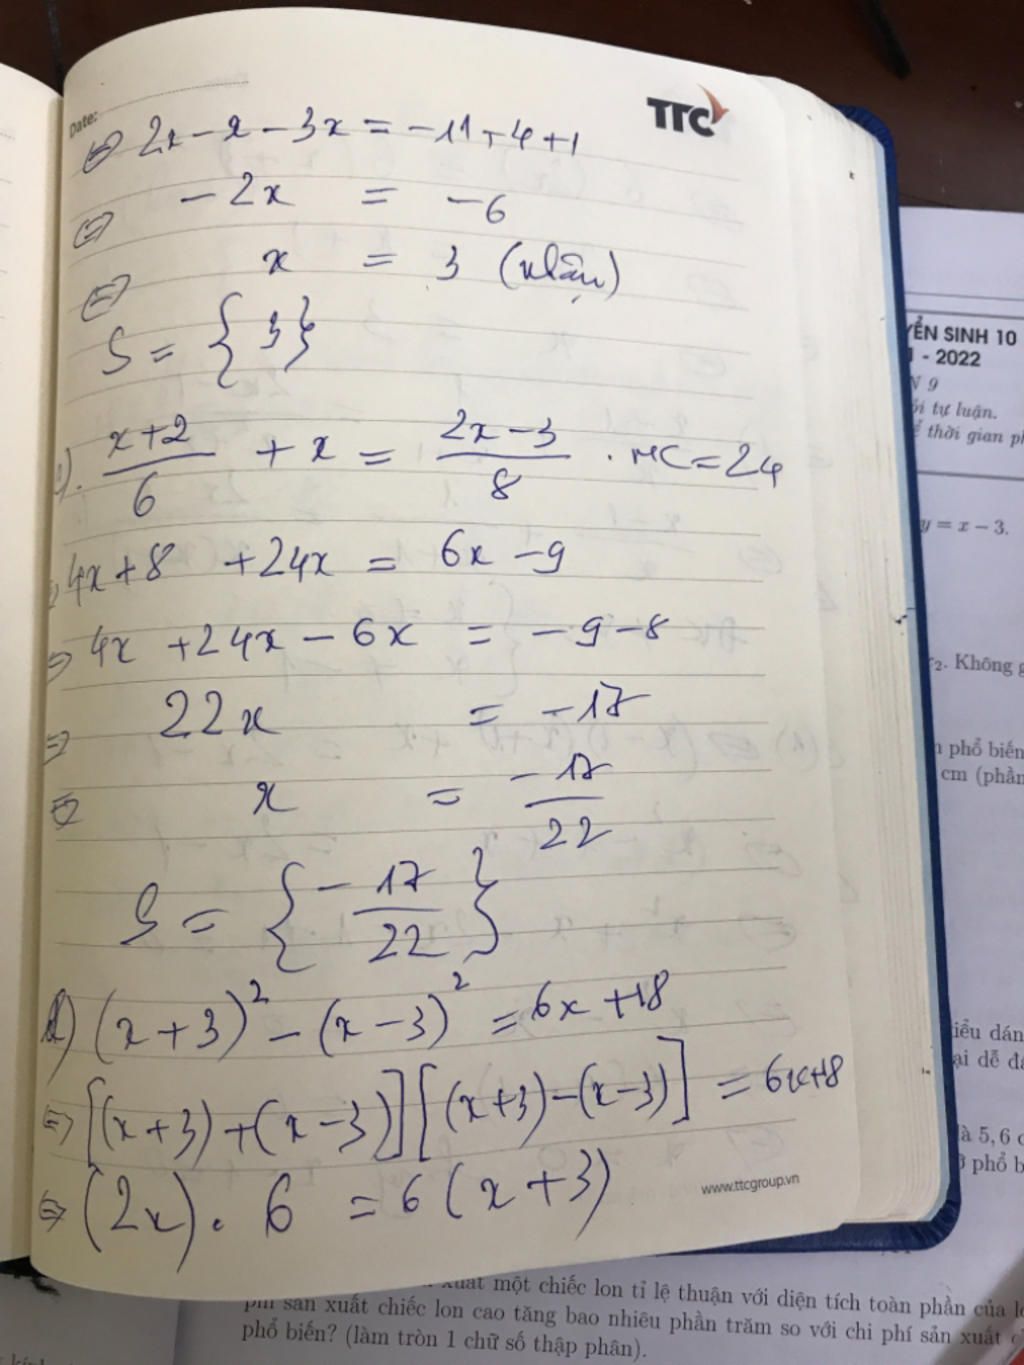 Date:
TTC
⇔ 2x - x - 3x = -11 + 4 + 1
⇔ -2x = -6
⇔ x = 3 (nhận)
S = { 3 }
c). x+2/6 + x = 2x-3/8 . MC = 24
⇔ 4x + 8 + 24x = 6x - 9
⇔ 4x + 24x - 6x = -9 - 8
⇔ 22x = -17
⇔ x = -17/22
S = { -17/22 }
d) (x+3)² - (x-3)² = 6x + 18
⇔ [(x+3) + (x-3)] [(x+3) - (x-3)] = 6x+18
⇔ (2x) . 6 = 6(x+3)
www.ttcgroup.vn
YỂN SINH 10
- 2022
9
tự luận.
thời gian
y = x - 3.
Không
phổ biến
cm (phần
kiểu dán
ại dễ
là 5,6
phổ
xuất một chiếc lon tỉ lệ thuận với diện tích toàn phần của
phí sản xuất chiếc lon cao tăng bao nhiêu phần trăm so với chi phí sản xuất
phổ biến? (làm tròn 1 chữ số thập phân).